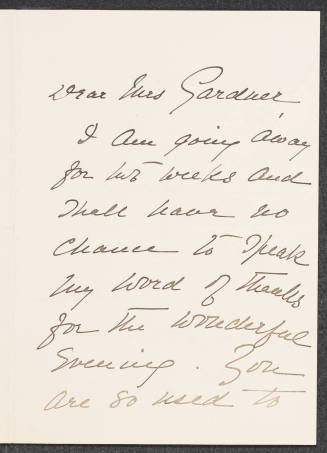 Dear Mrs Gardner,
I am going away
for two weeks and
shall have no
chance to speak
my word of thanks
for the wonderful
evening. You
are so used to